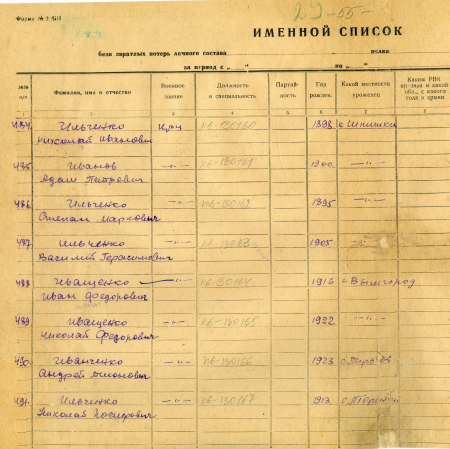 Форма № 2 БП
29 -55-
ИМЕННОЙ СПИСОК
безвозвратных потерь личного состава полка
за период с „ “ по „ “
№№ п/п Фамилия, имя и отчество Военное звание Должность и специальность Партийность Год рожден. Какой местности уроженец Каким РВК призван и какой обл., с какого года в армии
1 2 3 4 5 6 7 8
484. Ильченко Николай Иванович кр-ц кв-130160 1898 с. Шпитьки
485. Иванов Адам Петрович —"— кв-130161 1900 —"—
486. Ильченко Степан Маркович —"— кв-130162 1895 —"—
487. Ильченко Василий Герасимович —"— 1905 —"—
488. Иващенко Иван Федорович —"— кв-130164 1916 с. Вышгород
489. Иващенко Николай Федорович —"— кв-130165 1922 —"—
490. Иванченко Андрей —"— кв-130166 1923
491. Ильченко Николай —"— кв-130167 1913